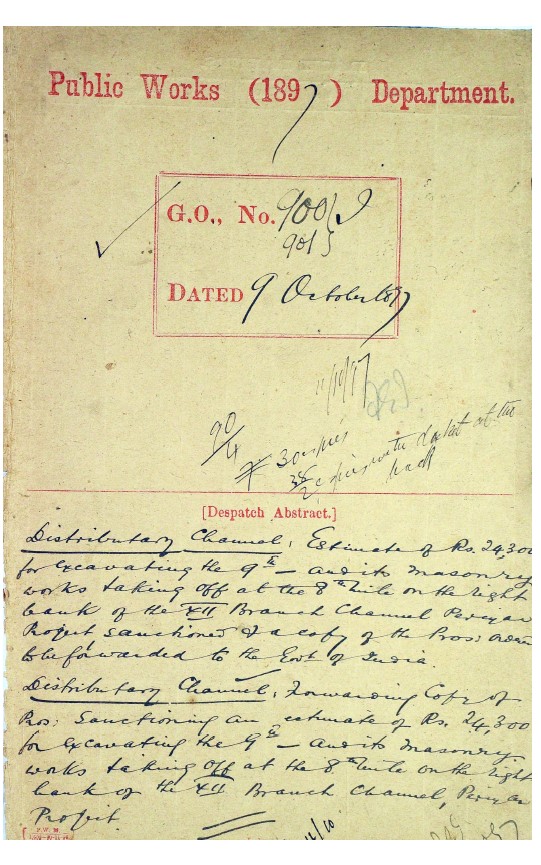 Public Works (1897) Department.
G.O., No. 900 } I
901 }
DATED 9 October 1897
11/10/97
90/4
30 copies
38
copies with docket at the
back
[Despatch Abstract.]
Distributary Channel, Estimate of Rs. 24,300
for excavating the 9th — and its masonry
works taking off at the 8th mile on the right
bank of the XII Branch Channel Periyar
Project sanctioned & a copy of the Pros: ordered
to be forwarded to the Govt of India.
Distributary Channel, Forwarding Copy of
Pros: Sanctioning an estimate of Rs. 24,300
for excavating the 9th — and its masonry
works taking off at the 8th mile on the right
bank of the XII Branch Channel, Periyar
Project.